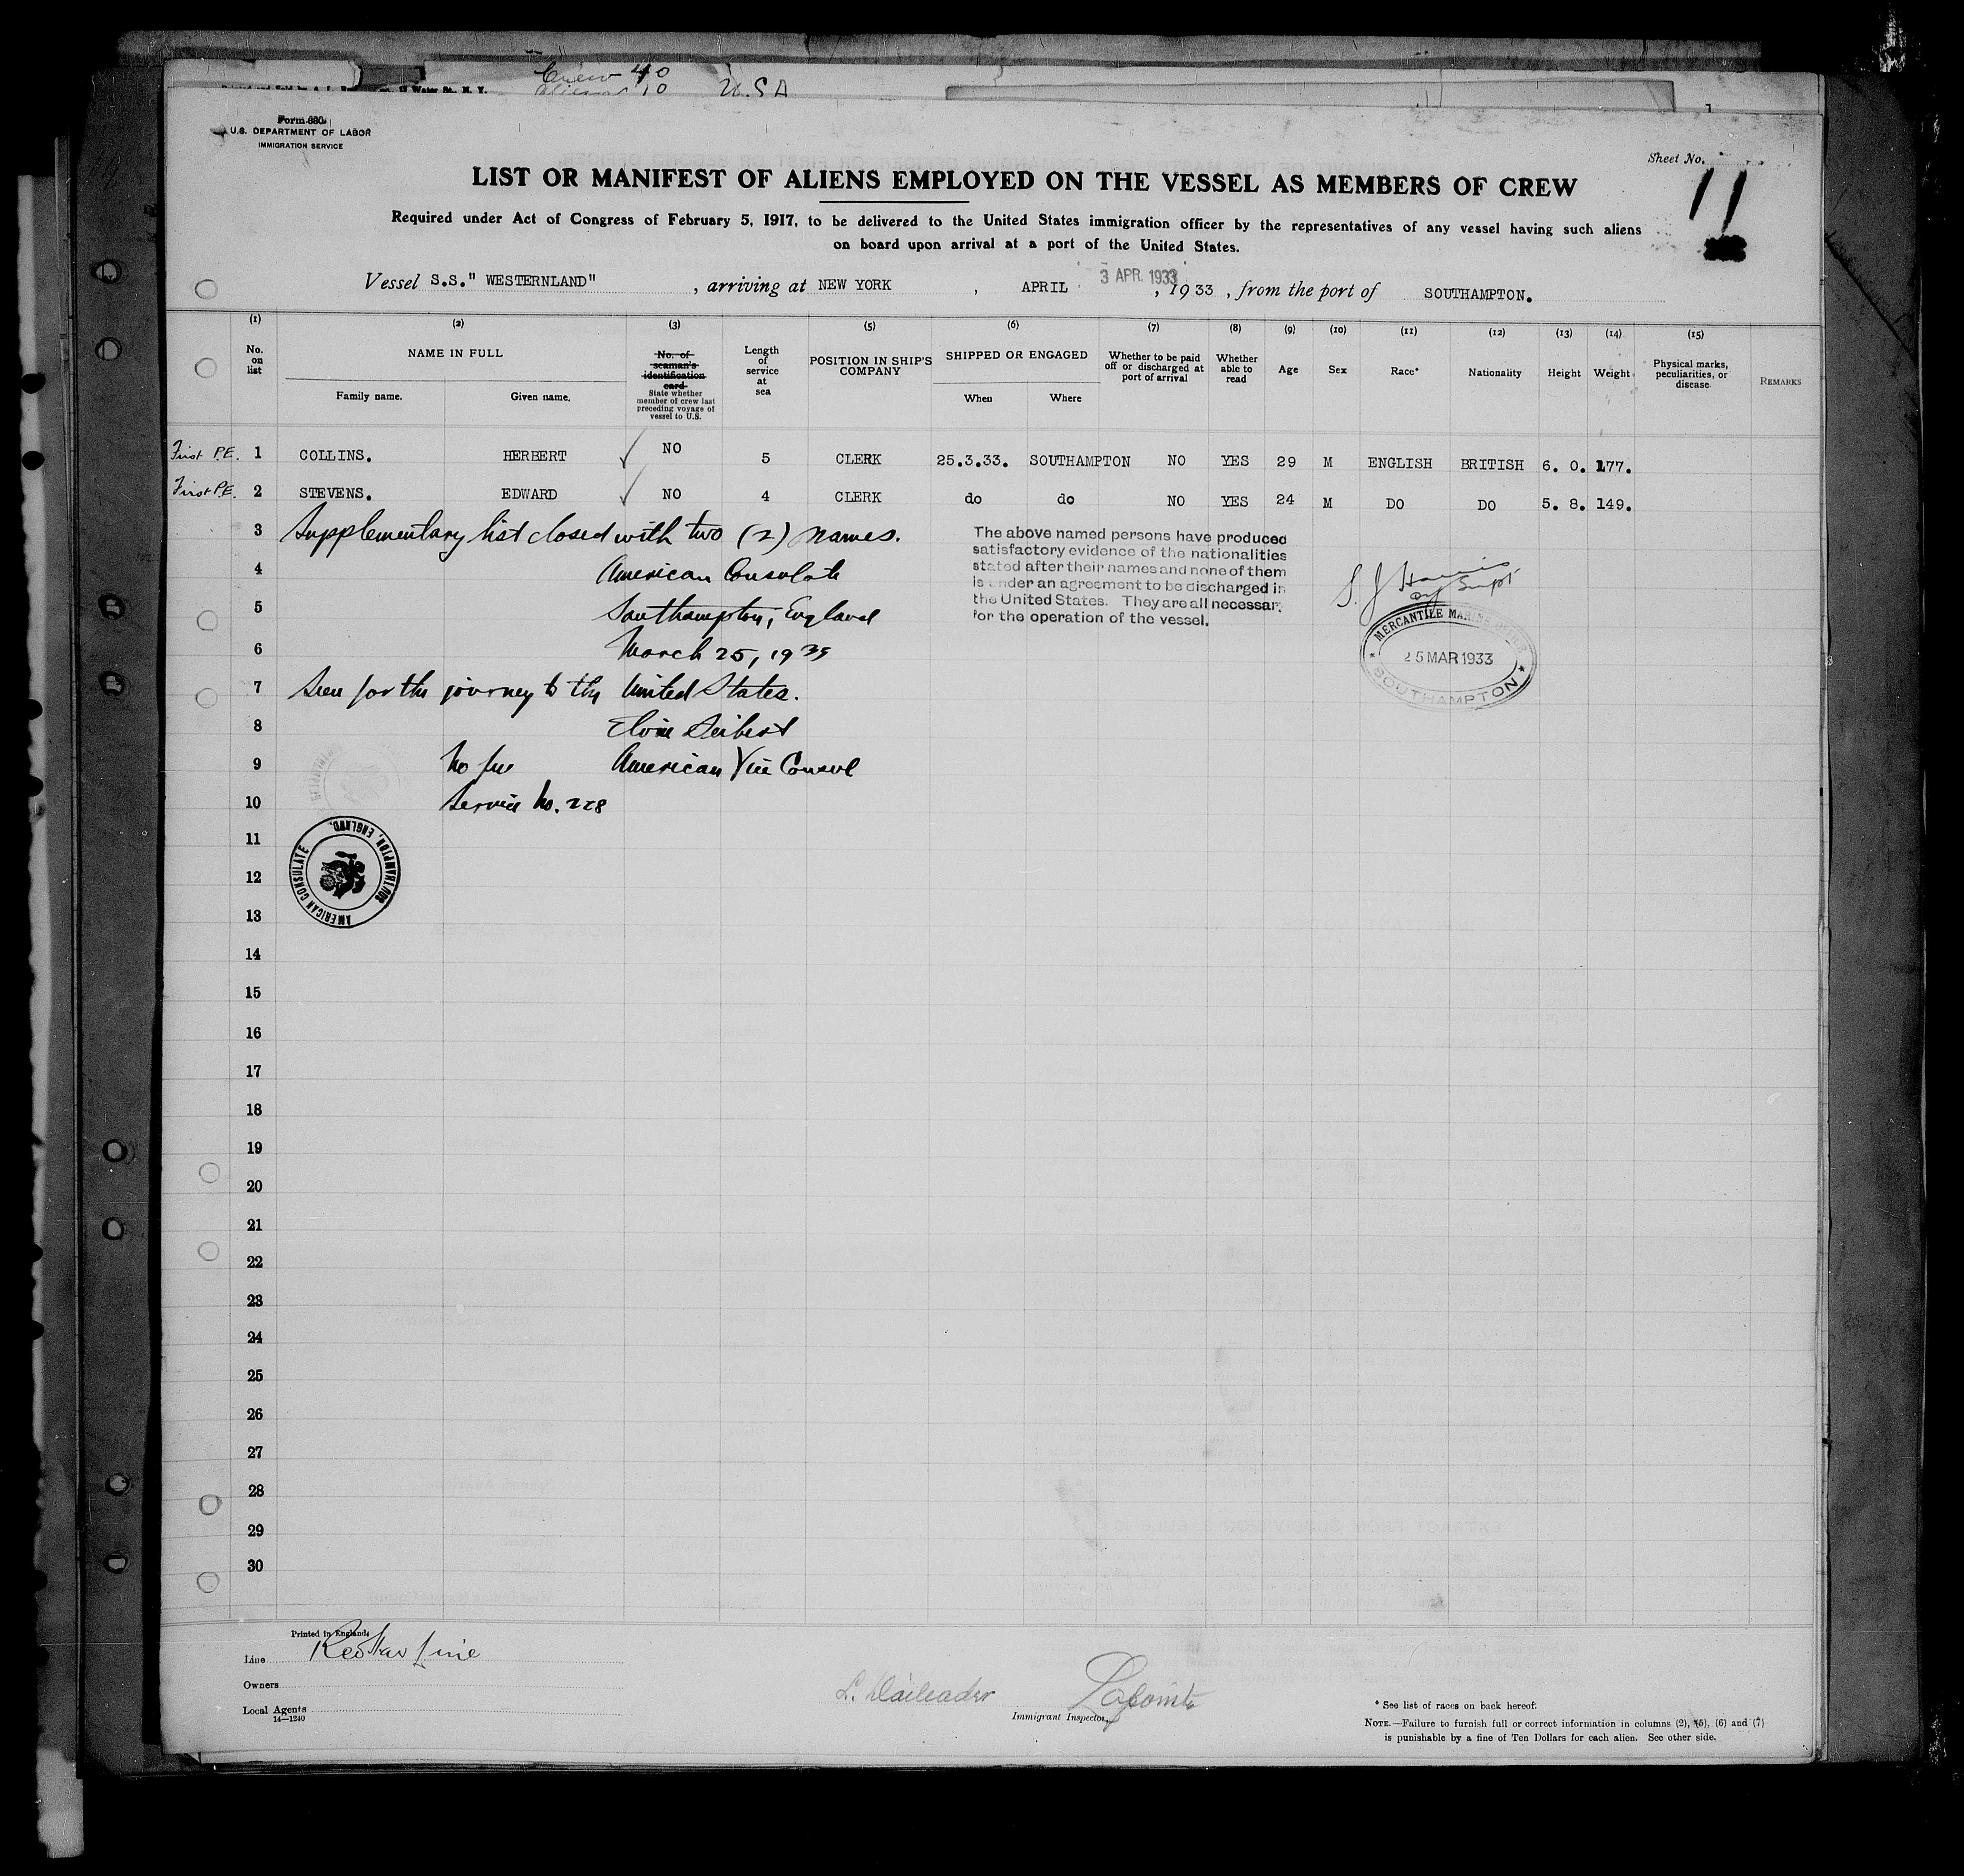 Crew 40
Aliens 10 U.S.A
Form 680
U.S. DEPARTMENT OF LABOR
IMMIGRATION SERVICE
Sheet No.
11
LIST OR MANIFEST OF ALIENS EMPLOYED ON THE VESSEL AS MEMBERS OF CREW
Required under Act of Congress of February 5, 1917, to be delivered to the United States immigration officer by the representatives of any vessel having such aliens
on board upon arrival at a port of the United States.
Vessel S.S." WESTERNLAND" , arriving at NEW YORK , APRIL 3 APR. 1933 , 1933 , from the port of SOUTHAMPTON.
(1) (2) (3) (5) (6) (7) (8) (9) (10) (11) (12) (13) (14) (15)
No. on list
NAME IN FULL
Family name. Given name.
No. of seaman's identification card
State whether member of crew last preceding voyage of vessel to U.S.
Length of service at sea
POSITION IN SHIP'S COMPANY
SHIPPED OR ENGAGED
When Where
Whether to be paid off or discharged at port of arrival
Whether able to read
Age
Sex
Race*
Nationality
Height
Weight
Physical marks, peculiarities, or disease
REMARKS
First P.E. 1 COLLINS. HERBERT NO 5 CLERK 25.3.33. SOUTHAMPTON NO YES 29 M ENGLISH BRITISH 6. 0. 177.
First P.E. 2 STEVENS. EDWARD NO 4 CLERK do do NO YES 24 M DO DO 5. 8. 149.
3 Supplementary list closed with two (2) names.
4 American Consulate
5 Southampton, England
6 March 25, 1933
7 Seen for the journey to the United States.
8 Elvin Seibert
9 No fee American Vice Consul
10 Service No. 228
The above named persons have produced
satisfactory evidence of the nationalities
stated after their names and none of them
is under an agreement to be discharged in
the United States. They are all necessar
for the operation of the vessel.
S. J Harris
Supt
MERCANTILE MARINE OFFICE
25 MAR 1933
SOUTHAMPTON
AMERICAN CONSULATE
SOUTHAMPTON, ENGLAND.
11
12
13
14
15
16
17
18
19
20
21
22
23
24
25
26
27
28
29
30
Printed in England.
Line Red Star Line
Owners
Local Agents
14—1240
Immigrant Inspector.
* See list of races on back hereof.
NOTE.—Failure to furnish full or correct information in columns (2), (5), (6) and (7)
is punishable by a fine of Ten Dollars for each alien. See other side.